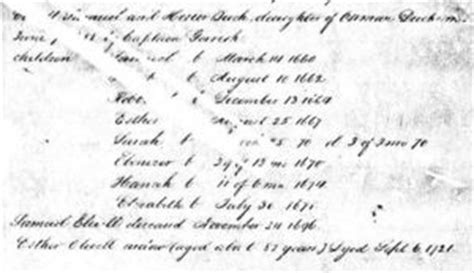 and Hester Duch, daughter of Osman Duch m
June Captain Garish
children Samuel b March 14 1660
b August 10 1662
Robt December 13 1664
Esther August 25 1667
Sarah b 5 70 d 3 of 3 mo 70
Ebenezer b 29 of 12 mo 1670
Hanah b 11 of 6 mo 1674
Elizabeth b July 30 167
Samuel Elwell deceased November 24 1696
Esther Elwell widow (aged abot 82 years) Dyed Sept. 6, 1721